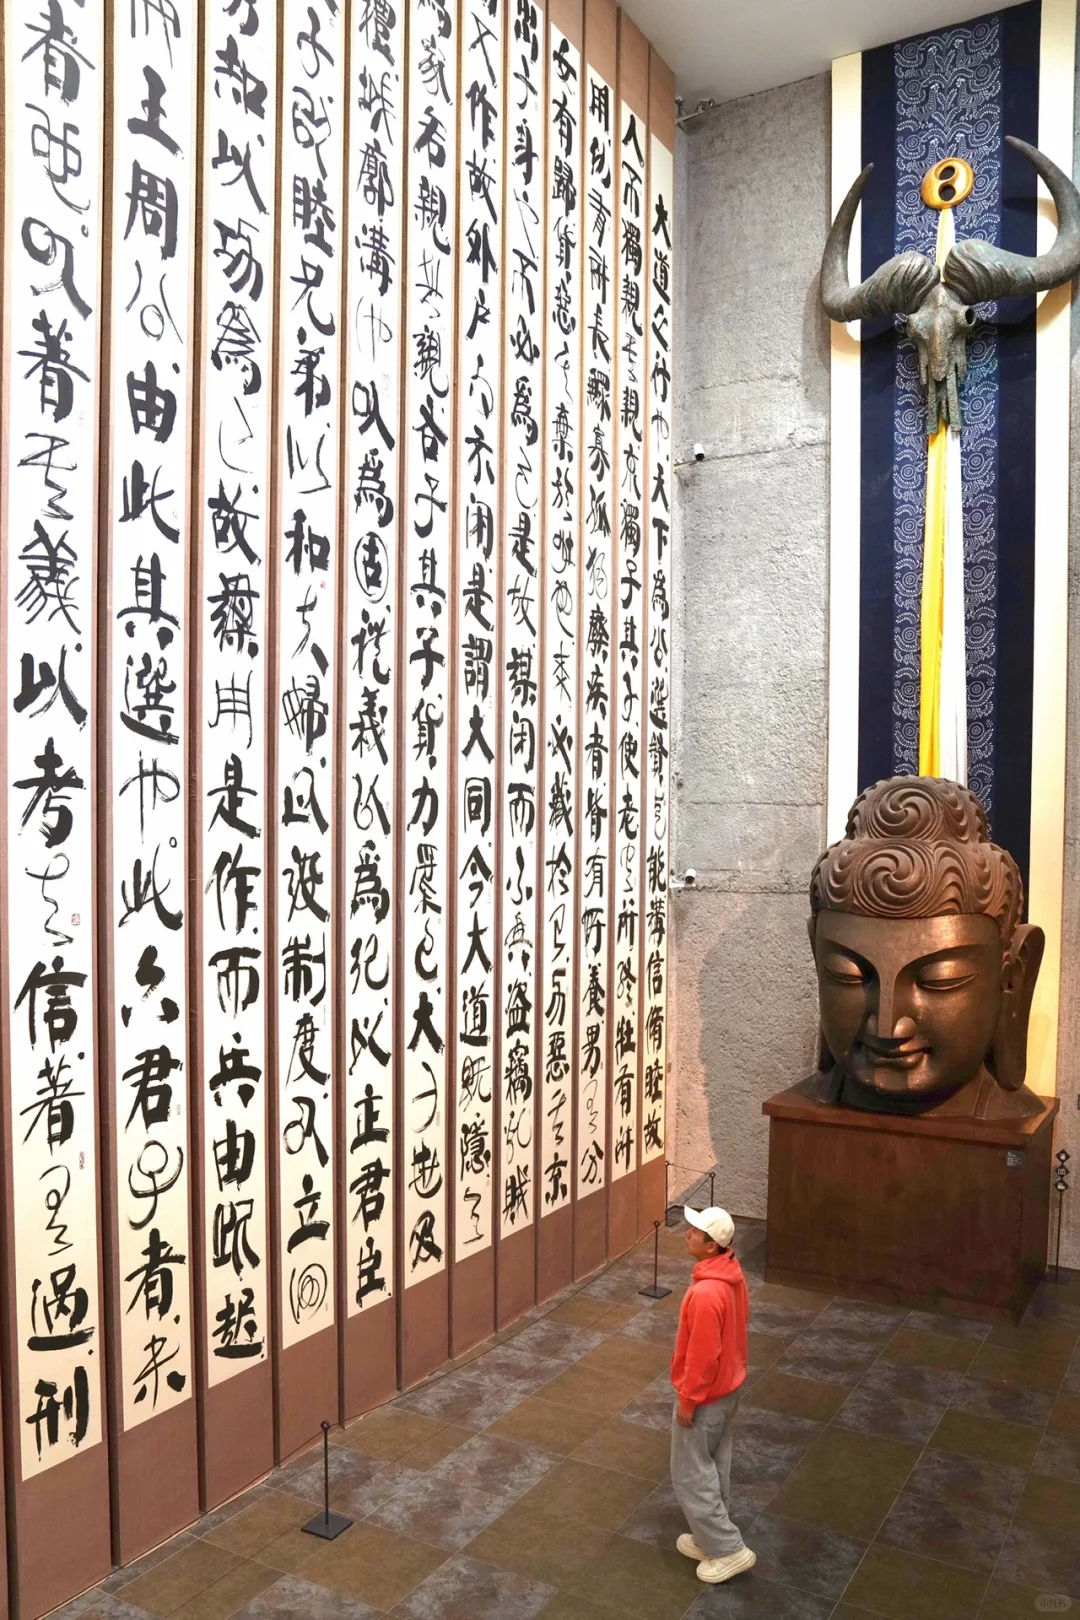 大道之行也天下為公選賢與能講信脩睦故
人不獨親其親不獨子其子使老有所終壯有所
用幼有所長鰥寡孤獨廢疾者皆有所養男有分
女有歸貨惡其棄於地也不必藏於己力惡其不
出於身也不必為己是故謀閉而不興盜竊亂賊
不作故外戶而不閉是謂大同今大道既隱天
為家各親其親各子其子貨力為己大人世及
禮城郭溝池以為固禮義以為紀以正君臣
子以睦兄弟以和夫婦以設制度以立田
勇知以功為己故謀用是作而兵由此起
成王周公由此其選也。此六君子者未
者也。以著其義以考其信著有過刑
小红书